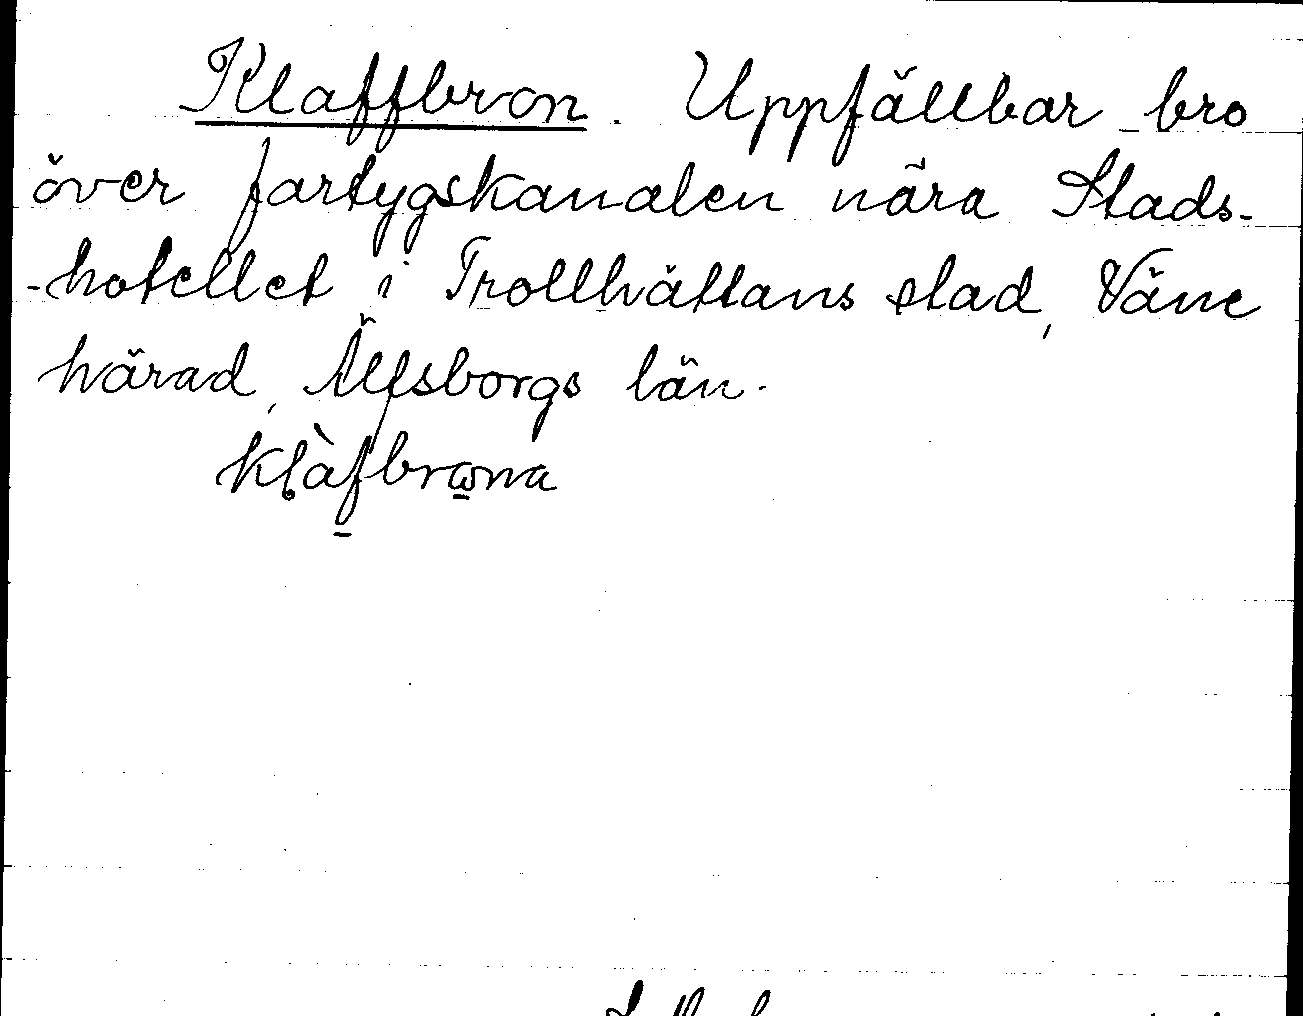 Klaffbron. Uppfällbar bro
över fartygskanalen nära Stads-
-hotellet i Trollhättans stad, Väne
härad, Älfsborgs län.
klàfbrωna